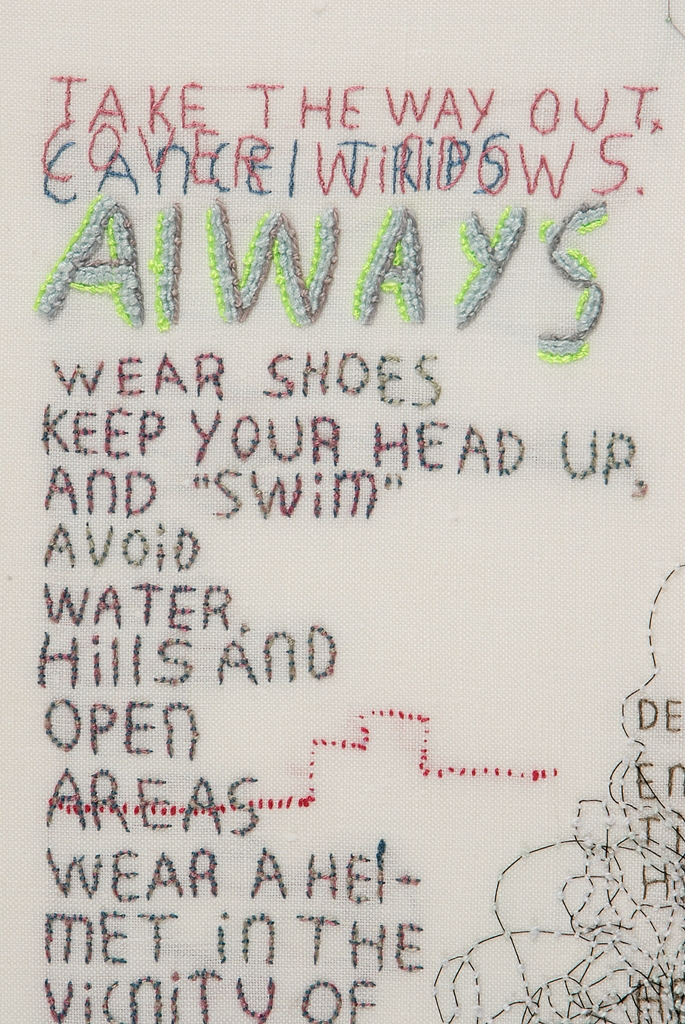 TAKE THE WAY OUT.
COVER WINDOWS.
CANCEl TRiPS
AlWAYS
WEAR SHOES
KEEP YOUR HEAD UP,
AND "SWiM"
AVOiD
WATER,
HillS AND
OPEN
AREAS
WEAR A HEl-
MET iN THE
ViCiNiTY OF
DE
EN